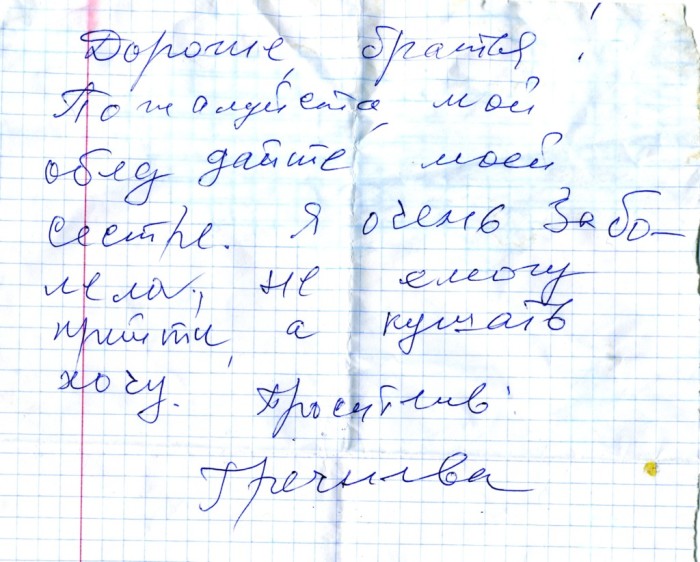 Дорогие, братья!
Пожалуйста, мой
обед дайте, моей
сестре. Я очень забо-
лела, не смогу
прийти, а кушать
хочу.